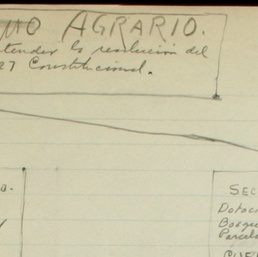 AGRARIO.
la resolución del
27 Constitucional.
SEC
Dotac
Bosqu
Parcela